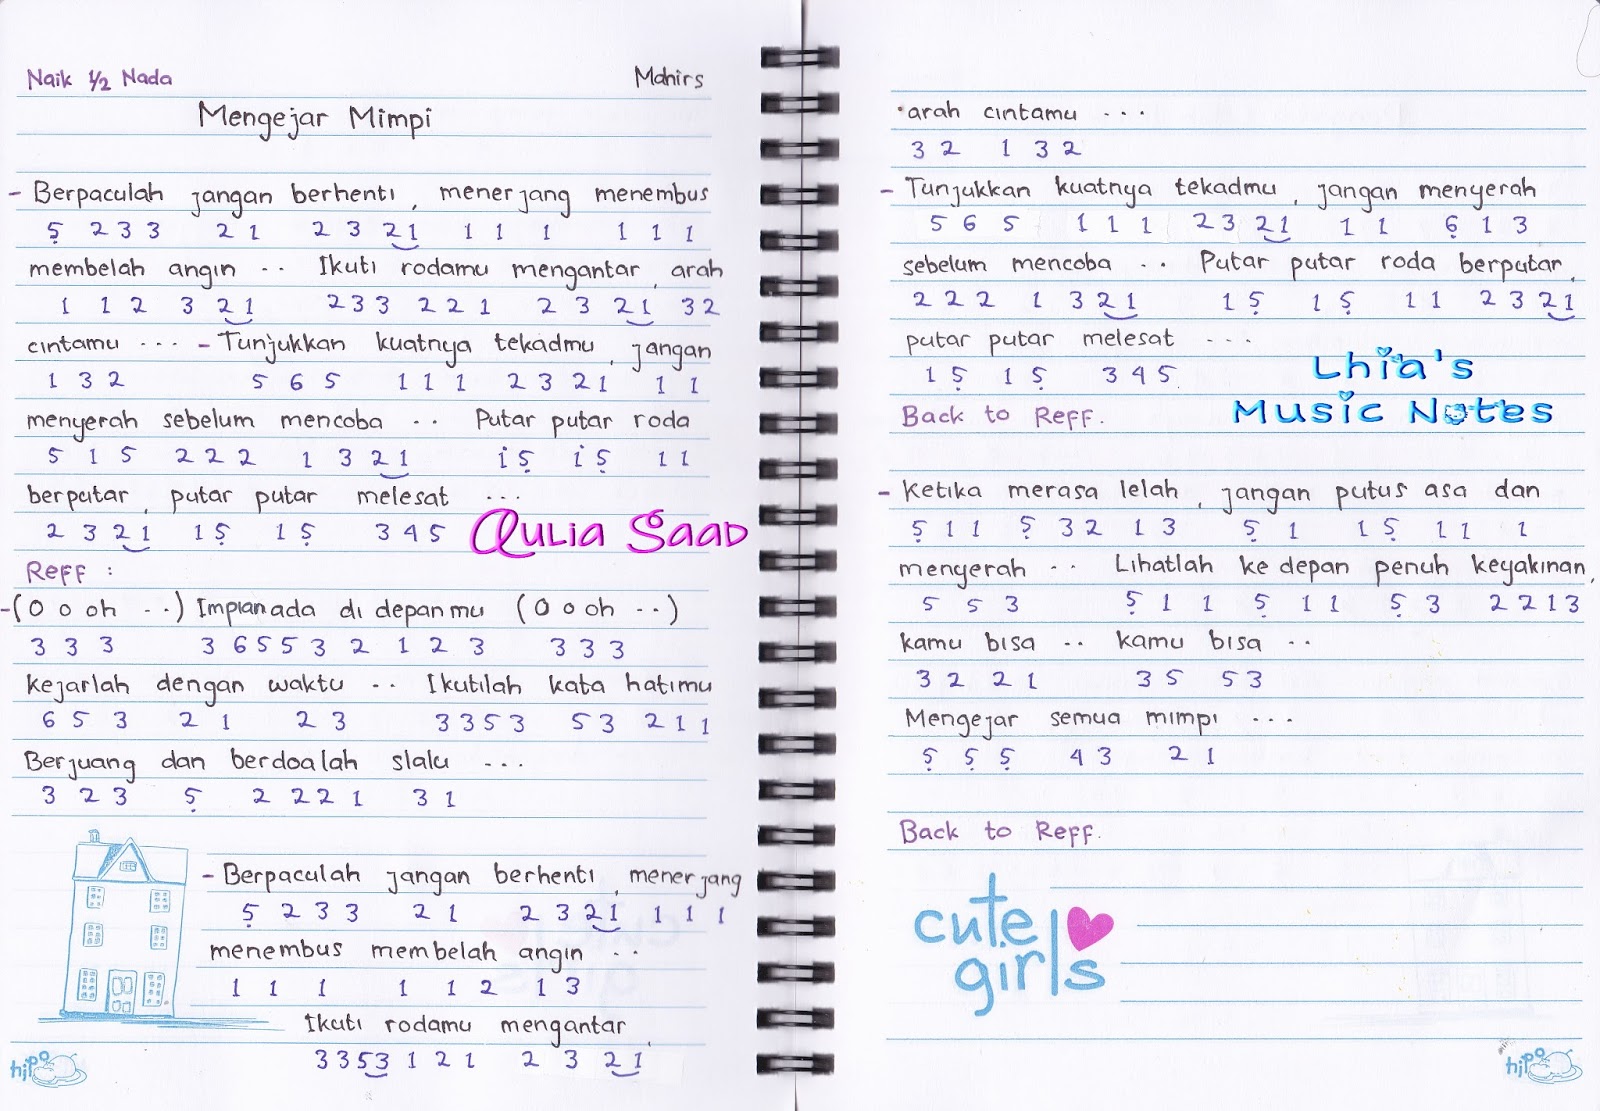 Naik 1/2 Nada
Mahirs
Mengejar Mimpi
- Berpaculah jangan berhenti, menerjang menembus
5̣ 2 3 3 2 1 2 3 2 1 1 1 1 1 1 1
membelah angin .. Ikuti rodamu mengantar, arah
1 1 2 3 2 1 2 3 3 2 2 1 2 3 2 1 3 2
cintamu ... - Tunjukkan kuatnya tekadmu, jangan
1 3 2 5 6 5 1 1 1 2 3 2 1 1 1
menyerah sebelum mencoba .. Putar putar roda
5 1 5 2 2 2 1 3 2 1 i 5̣ i 5̣ 1 1
berputar, putar putar melesat ...
2 3 2 1 1 5̣ 1 5̣ 3 4 5
Aulia Saad
Reff :
- (O o oh ..) Impian ada di depanmu (O o oh ..)
3 3 3 3 6 5 5 3 2 1 2 3 3 3 3
kejarlah dengan waktu .. Ikutilah kata hatimu
6 5 3 2 1 2 3 3 3 5 3 5 3 2 1 1
Berjuang dan berdoalah slalu ...
3 2 3 5̣ 2 2 2 1 3 1
- Berpaculah jangan berhenti, menerjang
5̣ 2 3 3 2 1 2 3 2 1 1 1 1
menembus membelah angin ..
1 1 1 1 1 2 1 3
Ikuti rodamu mengantar,
3 3 5 3 1 2 1 2 3 2 1
hipo
arah cintamu ...
3 2 1 3 2
- Tunjukkan kuatnya tekadmu, jangan menyerah
5 6 5 1 1 1 2 3 2 1 1 1 6̣ 1 3
sebelum mencoba .. Putar putar roda berputar,
2 2 2 1 3 2 1 1 5̣ 1 5̣ 1 1 2 3 2 1
putar putar melesat ...
1 5̣ 1 5̣ 3 4 5
Lhia's
Music Notes
Back to Reff.
- Ketika merasa lelah, jangan putus asa dan
5̣ 1 1 5̣ 3 2 1 3 5̣ 1 1 5̣ 1 1 1
menyerah .. Lihatlah ke depan penuh keyakinan,
5 5 3 5̣ 1 1 5̣ 1 1 5̣ 3 2 2 1 3
kamu bisa .. kamu bisa ..
3 2 2 1 3 5 5 3
Mengejar semua mimpi ...
5̣ 5̣ 5̣ 4 3 2 1
Back to Reff.
cute
girls
hipo